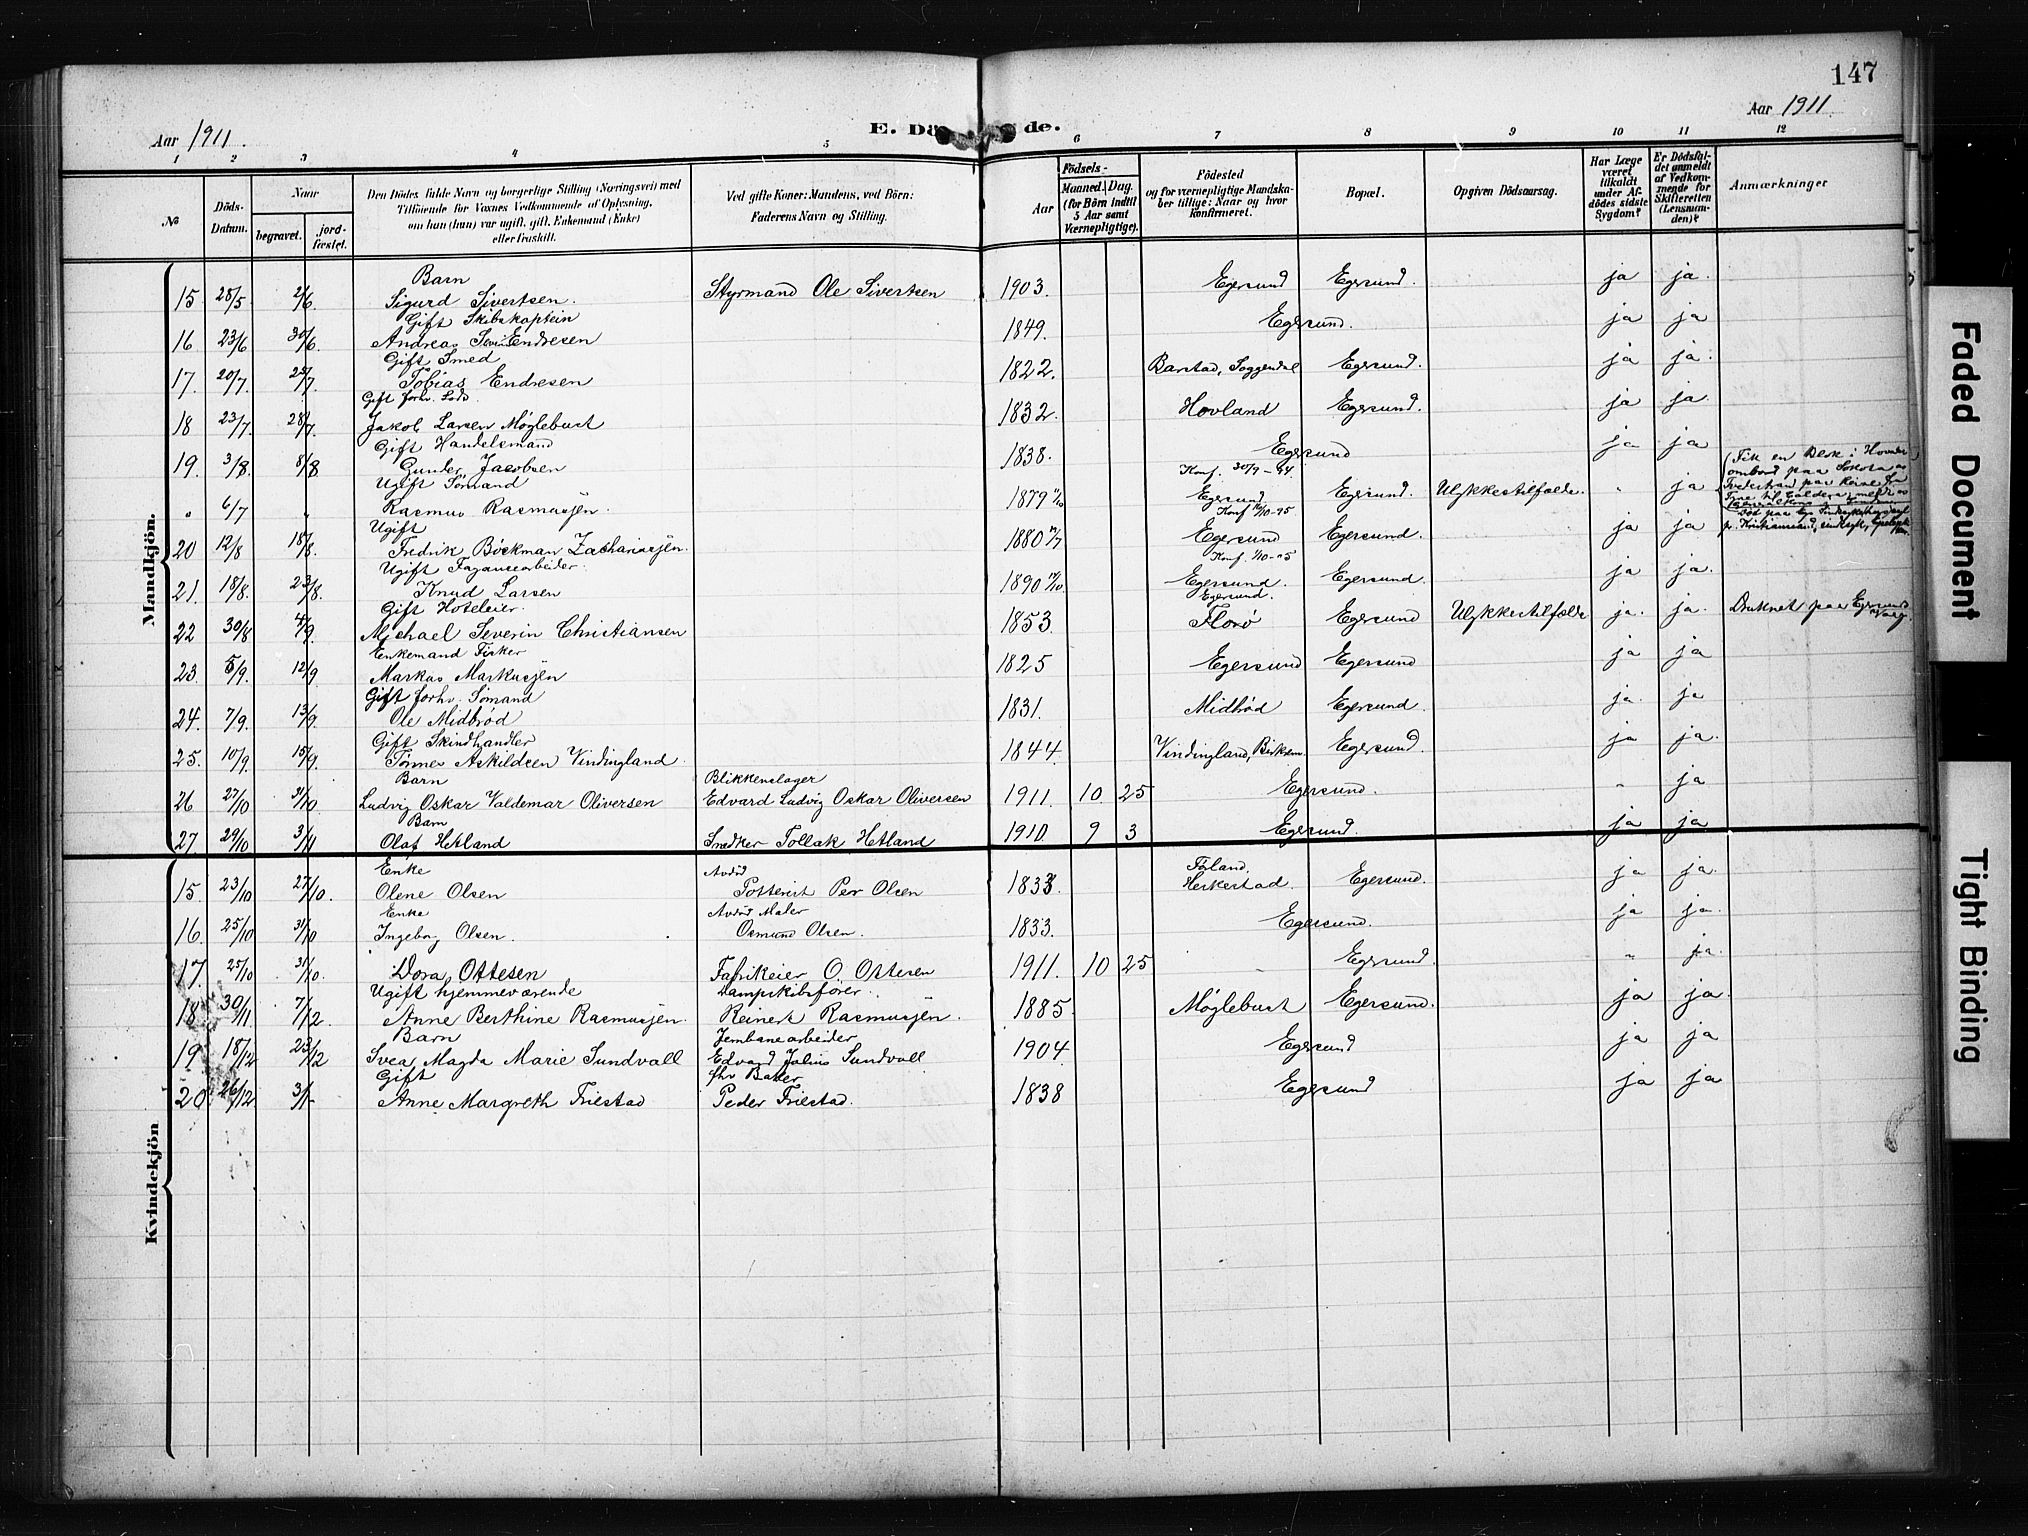 147
Aar 1911.
E. Dö de.
Aar 1911.
1 2 3 4 5 6 7 8 9 10 11 12
No
Döds-Datum.
Naar
begravet.
jord-fæstet.
Den Dödes fulde Navn og borgerlige Stilling (Næringsvei) med
Tilföiende for Voxnes Vedkommende af Oplysning,
om han (hun) var ugift, gift, Enkemand (Enke)
eller fraskilt.
Ved gifte Koner: Mandens, ved Börn:
Faderens Navn og Stilling.
Födsels-
Aar
Maaned. Dag.
(for Börn indtil
5 Aar samt
Værnepligtige).
Födested
og for værnepligtige Mandska-
ber tillige: Naar og hvor
konfirmeret.
Bopæl.
Opgiven Dödsaarsag.
Har Læge
været
tilkaldt
under Af-
dödes sidste
Sygdom?
Er Dödsfal-
det anmeldt
af Vedkom-
mende for
Skifteretten
(Lensman-
den)?
Anmærkninger
Mandkjön.
Barn
15 28/5 2/6 Sigurd Sivertsen. Styrmand Ole Sivertsen 1903. Egersund Egersund. ja ja.
Gift Skibskaptein
16 23/6 30/6. Andreas Endresen 1849. Egersund. ja ja
Gift Smed
17. 20/7. 25/7 Tobias Endresen 1822. Barstad, Soggendal Egersund. ja ja.
Gift forhv. Lods.
18 23/7. 28/7. Jakob Larsen Møglebust 1832. Hovland Egersund. ja ja.
Gift Handelsmand
19. 3/8. 8/8 Gunder Jacobsen 1838. Egersund ja ja
Ugift Sømand Konf. 30/9-94.
" 6/7 " Rasmus Rasmussen. 1879 Egersund Egersund. Ulykkestilfælde. " ja
Ugift Konf
20 12/8 18/8. Fredrik Bøckman Zachariassen. 1880 Egersund Egersund. ja ja
Ugift Fajancearbeider. Konf.
21. 18/8. 23/8. Knud Larsen 1890 Egersund. Egersund. ja ja.
Gift Hoteleier. Egersund.
22 30/8 4/9. Michael Severin Christiansen 1853. Florø Egersund Ulykkestilfælde ja. ja. Druknet paa Egersund Vaag.
Enkemand Fisker
23. 5/9. 12/9 Markus Markussen 1825 Egersund Egersund ja ja
Gift forhv. Sømand
24. 7/9. 13/9. Ole Midbrød 1831. Midbrød Egersund. ja. ja
Gift Skindhandler
25. 10/9. 15/9. Tønnes Askildsen Vindingland 1844. Vindingland, Egersund. ja ja.
Barn Blikkenslager
26 27/10 31/10 Ludvig Oskar Valdemar Oliversen Edvard Ludvig Oskar Oliversen 1911. 10 25 Egersund. " ja
Barn
27. 29/10 3/11 Olaf Hetland Snedker Tollak Hetland 1910. 9 3 Egersund. ja ja
Kvindekjön
Enke Avdød Føland,
15. 23/10 27/10. Olene Olsen Potterist Per Olsen 1833. Heskestad. Egersund. ja ja.
Enke Avdød Maler
16. 25/10 31/10 Ingeborg Olsen. Osmund Olsen. 1833. Egersund. ja ja.
17. 25/10 31/10. Dora Ottesen Fabrikeier O. Ottesen 1911. 10 25 " Egersund. " ja.
Ugift hjemmeværende Dampskibsfører.
18 30/11 7/12. Anne Berthine Rasmussen. Reinert Rasmussen. 1885. Møglebust Egersund. ja ja.
Barn Jernbanearbeider
19 18/12 23/12 Svea Magda Marie Sundvall Edvard Julius Sundvall 1904 Egersund ja ja
Gift fhv. Baker
20 26/12 3/1- Anne Margreth Friestad Peder Friestad. 1838 Egersund ja ja
Faded Document
Tight Binding